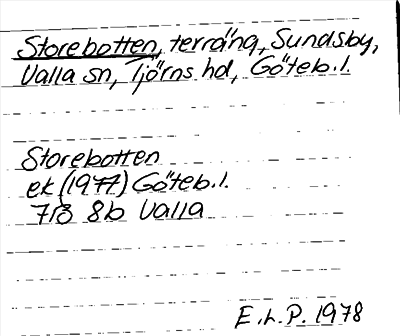 Storebotten, terräng, Sundsby,
Valla sn, Tjörns hd, Göteb.l.
Storebotten
ek (1977) Göteb.l.
7B 8b Valla
E.L.P. 1978